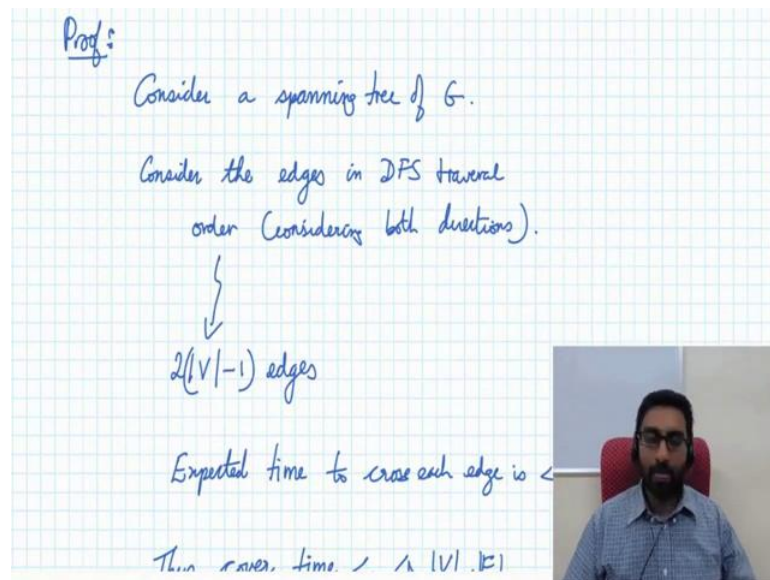 Proof:
Consider a spanning tree of G.
Consider the edges in DFS traversal
order (considering both directions).
2(|V|-1) edges
Expected time to cross each edge is <
Thus cover time < |V|.|E|